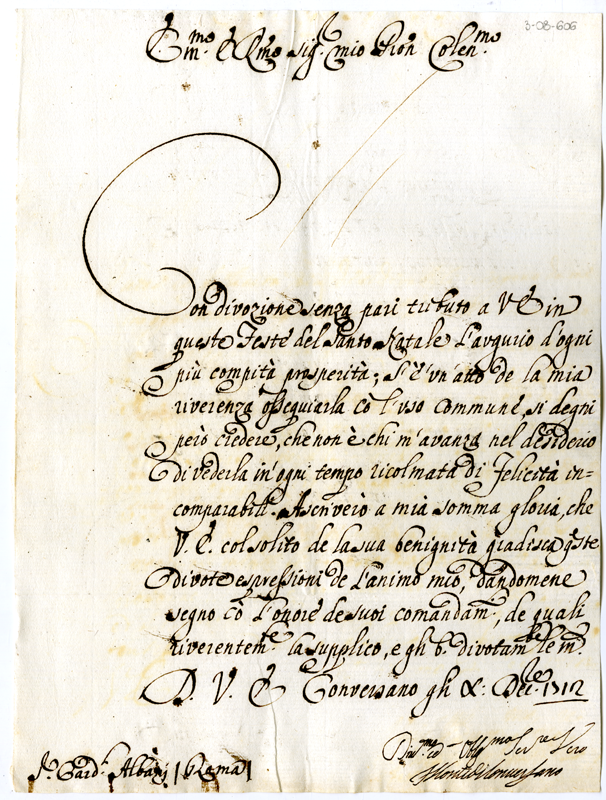 3-08-606
E.mo e R.mo Sig.r mio P'ron Colen.mo
Con divozione senza pari tributo a V E in
queste Feste del Santo Natale l'augurio d'ogni
più compita prosperità; S'è un'atto de la mia
riverenza ossequiarla cõ l'uso commune, si degni
però credere, che non è chi m'avanza nel desiderio
di vederla in'ogni tempo ricolmata di felicità in=
comparabili. Ascriverò a mia somma gloria, che
V. E. col solito de la sua benignità gradisca q.ste
divote espressioni de l'animo mio, dandomene
segno cõ l'onore de suoi comandam.ti, de quali
riverentem.e la supplico, e gli b. divotam.te le m.
D. V. E. Conversano gli X: Dec.re 1712
Div.mo ed Obblig.mo Ser.re Vero
Il Conte di Conversano
S.r Card.l Albani | Roma |